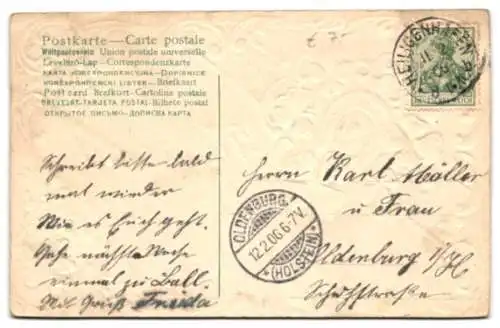 Postkarte — Carte postale
Weltpostverein Union postale universelle
Levelező-Lap — Correspondenzkarte
KARTA KORESPONDENCYJNA — DOPISNICE
KORESPONDENČNÍ LÍSTEK — Briefkaart
Post card — Brefkort — Cartolina postale
BREVKORT — TARJETA POSTAL — Bilhete postal
ОТКРЫТОЕ ПИСЬМО — ДОПИСНА КАРТА
HEILIGENHAFEN
Schreibt bitte bald
mal wieder
Wie es Euch geht.
Gehe nächste Woche
einmal zu Ball.
Mit Gruß Frieda
Herrn Karl Möller
u Frau
Oldenburg i/H
Schuhstraße
OLDENBURG
12.2.06.6-7V.
(HOLSTEIN)